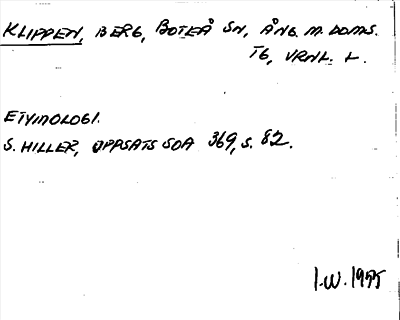 KLIPPEN, BERG, BOTEÅ SN, ÅNG. M. DOMS.
TG, VRNL. L.
ETYMOLOGI.
S. HILLER, UPPSATS SOA 369, S. 82.
I.W. 1975